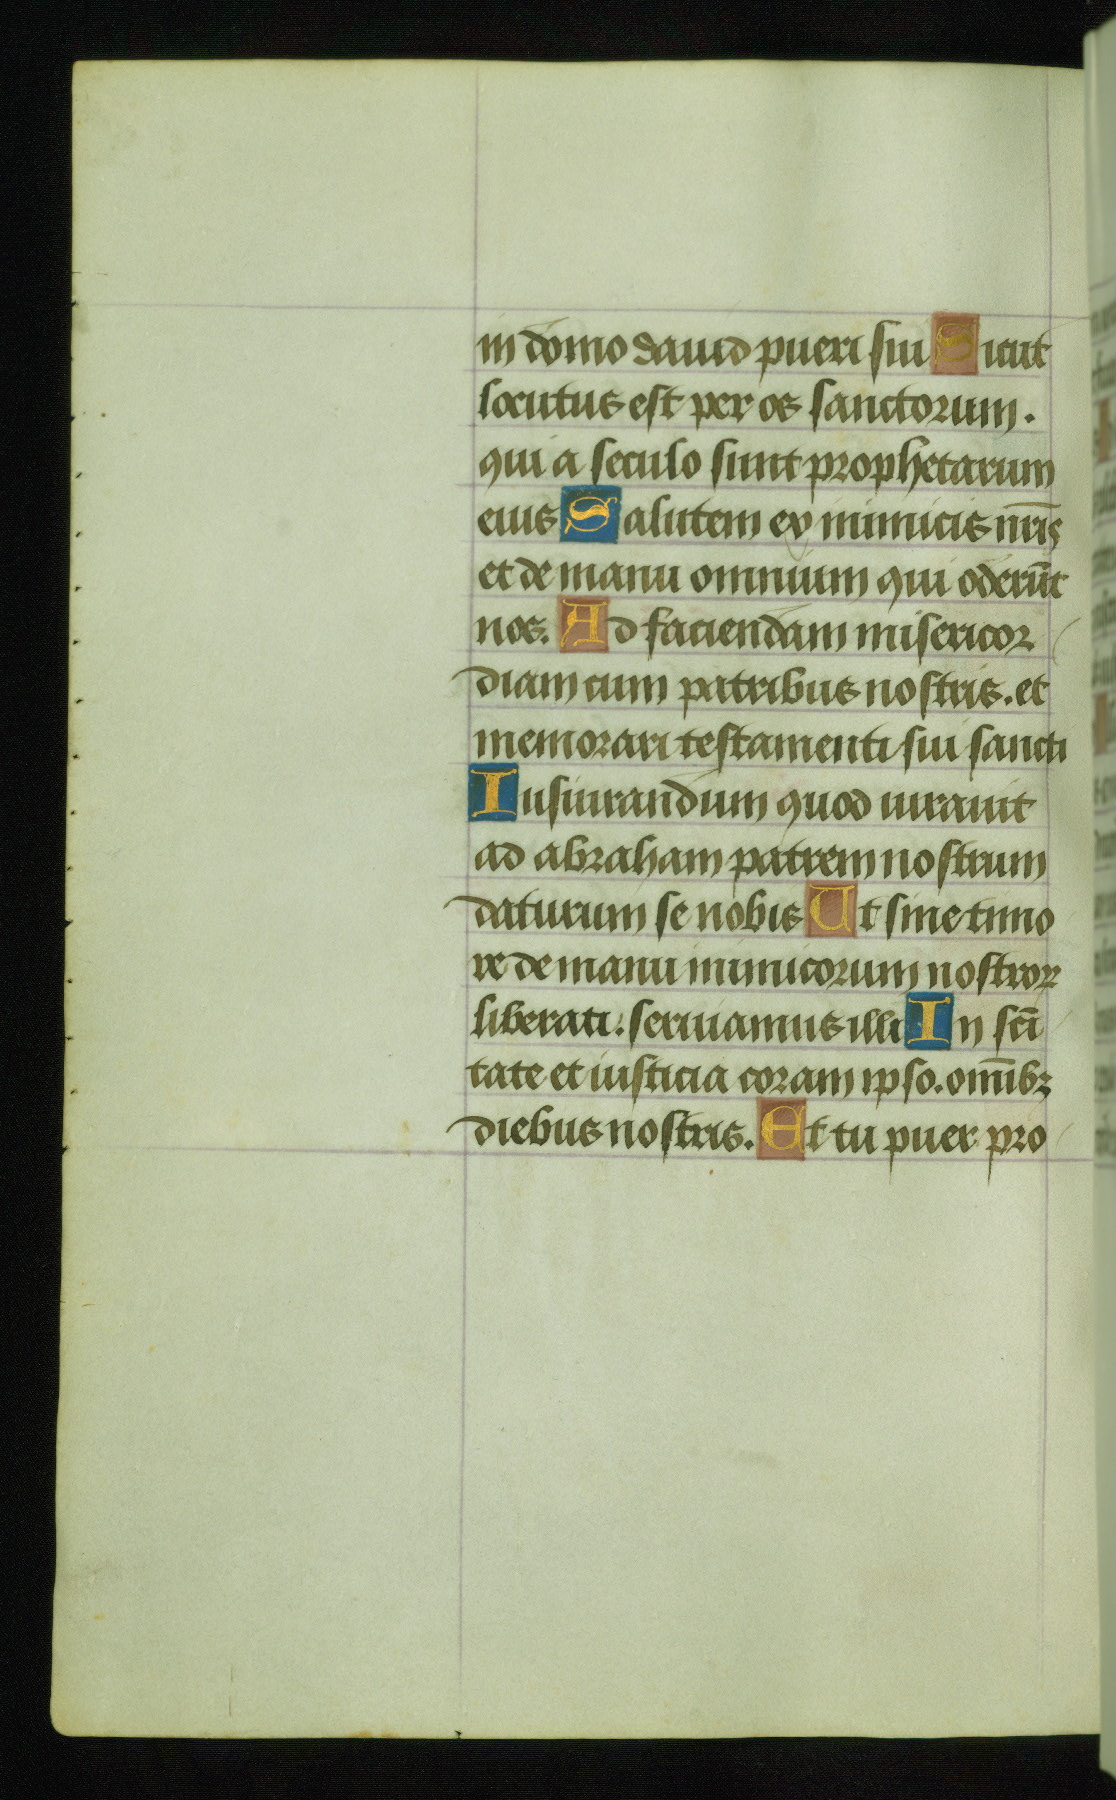 in domo dauid pueri sui Sicut
locutus est per os sanctorum.
qui a seculo sunt prophetarum
eius Salutem ex inimicis nr̅is
et de manu omnium qui oderu̅t
nos. Ad faciendam misericor
diam cum patribus nostris. et
memorari testamenti sui sancti
Iusiurandum quod iurauit
ad abraham patrem nostrum
daturum se nobis Ut sine timo
re de manu inimicorum nostroꝝ
liberati. seruiamus illi In sc̅i
tate et iusticia coram ipso. om̅ibꝫ
diebus nostris. Et tu puer pro